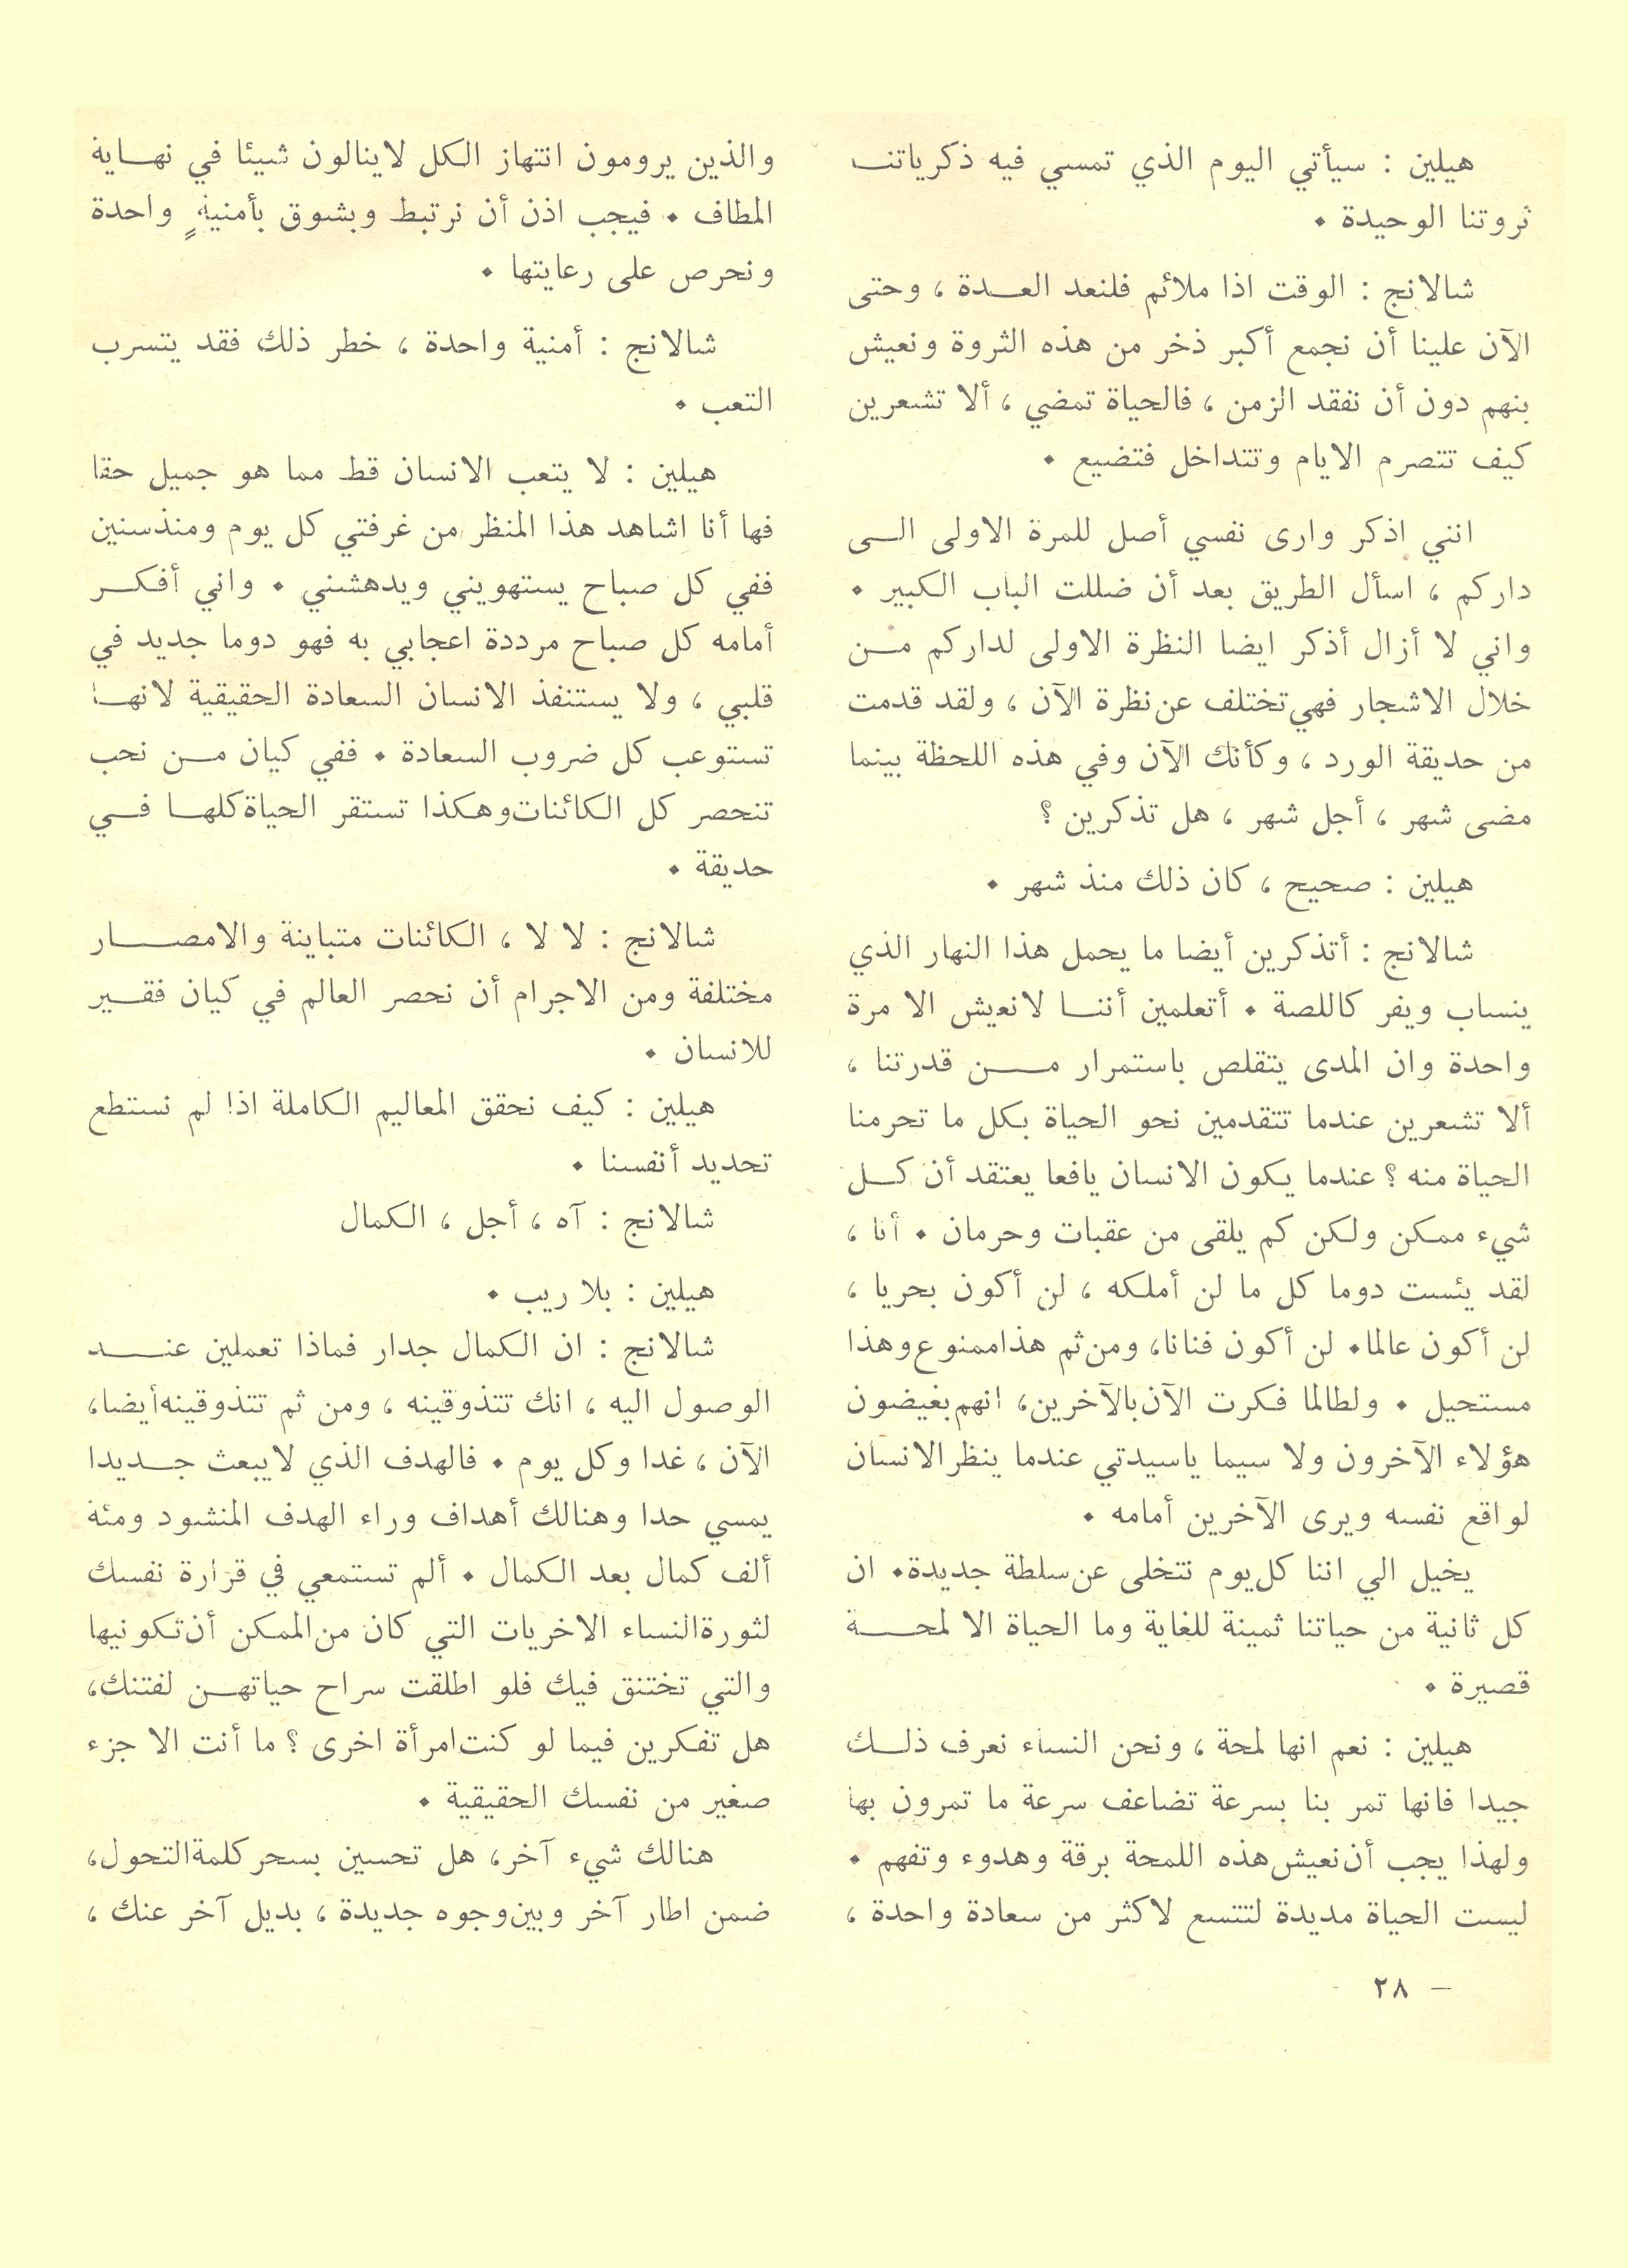 هيلين : سيأتي اليوم الذي تمسي فيه ذكرياتنا
ثروتنا الوحيدة ٠
شالانج : الوقت اذا ملائم فلنعد العدة ، وحتى
الآن علينا أن نجمع أكبر ذخر من هذه الثروة ونعيش
بنهم دون أن نفقد الزمن ، فالحياة تمضي ، ألا تشعرين
كيف تتصرم الايام وتتداخل فتضيع ٠
انني اذكر وارى نفسي أصل للمرة الاولى الى
داركم ، اسأل الطريق بعد أن ضللت الباب الكبير ٠
واني لا أزال أذكر ايضا النظرة الاولى لداركم من
خلال الاشجار فهي تختلف عن نظرة الآن ، ولقد قدمت
من حديقة الورد ، وكأنك الآن وفي هذه اللحظة بينما
مضى شهر ، أجل شهر ، هل تذكرين ؟
هيلين : صحيح ، كان ذلك منذ شهر ٠
شالانج : أتذكرين أيضا ما يحمل هذا النهار الذي
ينساب ويفر كاللصة ٠ أتعلمين أننا لانعيش الا مرة
واحدة وان المدى يتقلص باستمرار من قدرتنا ،
ألا تشعرين عندما تتقدمين نحو الحياة بكل ما تحرمنا
الحياة منه ؟ عندما يكون الانسان يافعا يعتقد أن كل
شيء ممكن ولكن كم يلقى من عقبات وحرمان ٠ أنا ،
لقد يئست دوما كل ما لن أملكه ، لن أكون بحريا ،
لن أكون عالما٠ لن أكون فنانا، ومن ثم هذا ممنوع وهذا
مستحيل ٠ ولطالما فكرت الآن بالآخرين، انهم بغيضون
هؤلاء الآخرون ولا سيما ياسيدتي عندما ينظر الانسان
لواقع نفسه ويرى الآخرين أمامه ٠
يخيل الي اننا كل يوم نتخلى عن سلطة جديدة٠ ان
كل ثانية من حياتنا ثمينة للغاية وما الحياة الا لمحة
قصيرة ٠
هيلين : نعم انها لمحة ، ونحن النساء نعرف ذلك
جيدا فانها تمر بنا بسرعة تضاعف سرعة ما تمرون بها
ولهذا يجب أن نعيش هذه اللمحة برقة وهدوء وتفهم ٠
ليست الحياة مديدة لتتسع لاكثر من سعادة واحدة ،
والذين يرومون انتهاز الكل لاينالون شيئا في نهاية
المطاف ٠ فيجب اذن أن نرتبط وبشوق بأمنيةٍ واحدة
ونحرص على رعايتها ٠
شالانج : أمنية واحدة ، خطر ذلك فقد يتسرب
التعب ٠
هيلين : لا يتعب الانسان قط مما هو جميل حقا
فها أنا اشاهد هذا المنظر من غرفتي كل يوم ومنذ سنين
ففي كل صباح يستهويني ويدهشني ٠ واني أفكر
أمامه كل صباح مرددة اعجابي به فهو دوما جديد في
قلبي ، ولا يستنفذ الانسان السعادة الحقيقية لانها
تستوعب كل ضروب السعادة ٠ ففي كيان من نحب
تنحصر كل الكائنات وهكذا تستقر الحياة كلها في
حديقة ٠
شالانج : لا لا ، الكائنات متباينة والامصار
مختلفة ومن الاجرام أن نحصر العالم في كيان فقير
للانسان ٠
هيلين : كيف نحقق المعاليم الكاملة اذا لم نستطع
تحديد أنفسنا ٠
شالانج : آه ، أجل ، الكمال
هيلين : بلا ريب ٠
شالانج : ان الكمال جدار فماذا تعملين عند
الوصول اليه ، انك تتذوقينه ، ومن ثم تتذوقينه أيضا،
الآن ، غدا وكل يوم ٠ فالهدف الذي لايبعث جديدا
يمسي حدا وهنالك أهداف وراء الهدف المنشود ومئة
ألف كمال بعد الكمال ٠ ألم تستمعي في قرارة نفسك
لثورة النساء الاخريات التي كان من الممكن أن تكونيها
والتي تختنق فيك فلو اطلقت سراح حياتهن لفتنك،
هل تفكرين فيما لو كنت امرأة اخرى ؟ ما أنت الا جزء
صغير من نفسك الحقيقية ٠
هنالك شيء آخر، هل تحسين بسحر كلمة التحول،
ضمن اطار آخر وبين وجوه جديدة ، بديل آخر عنك ،
– ٢٨